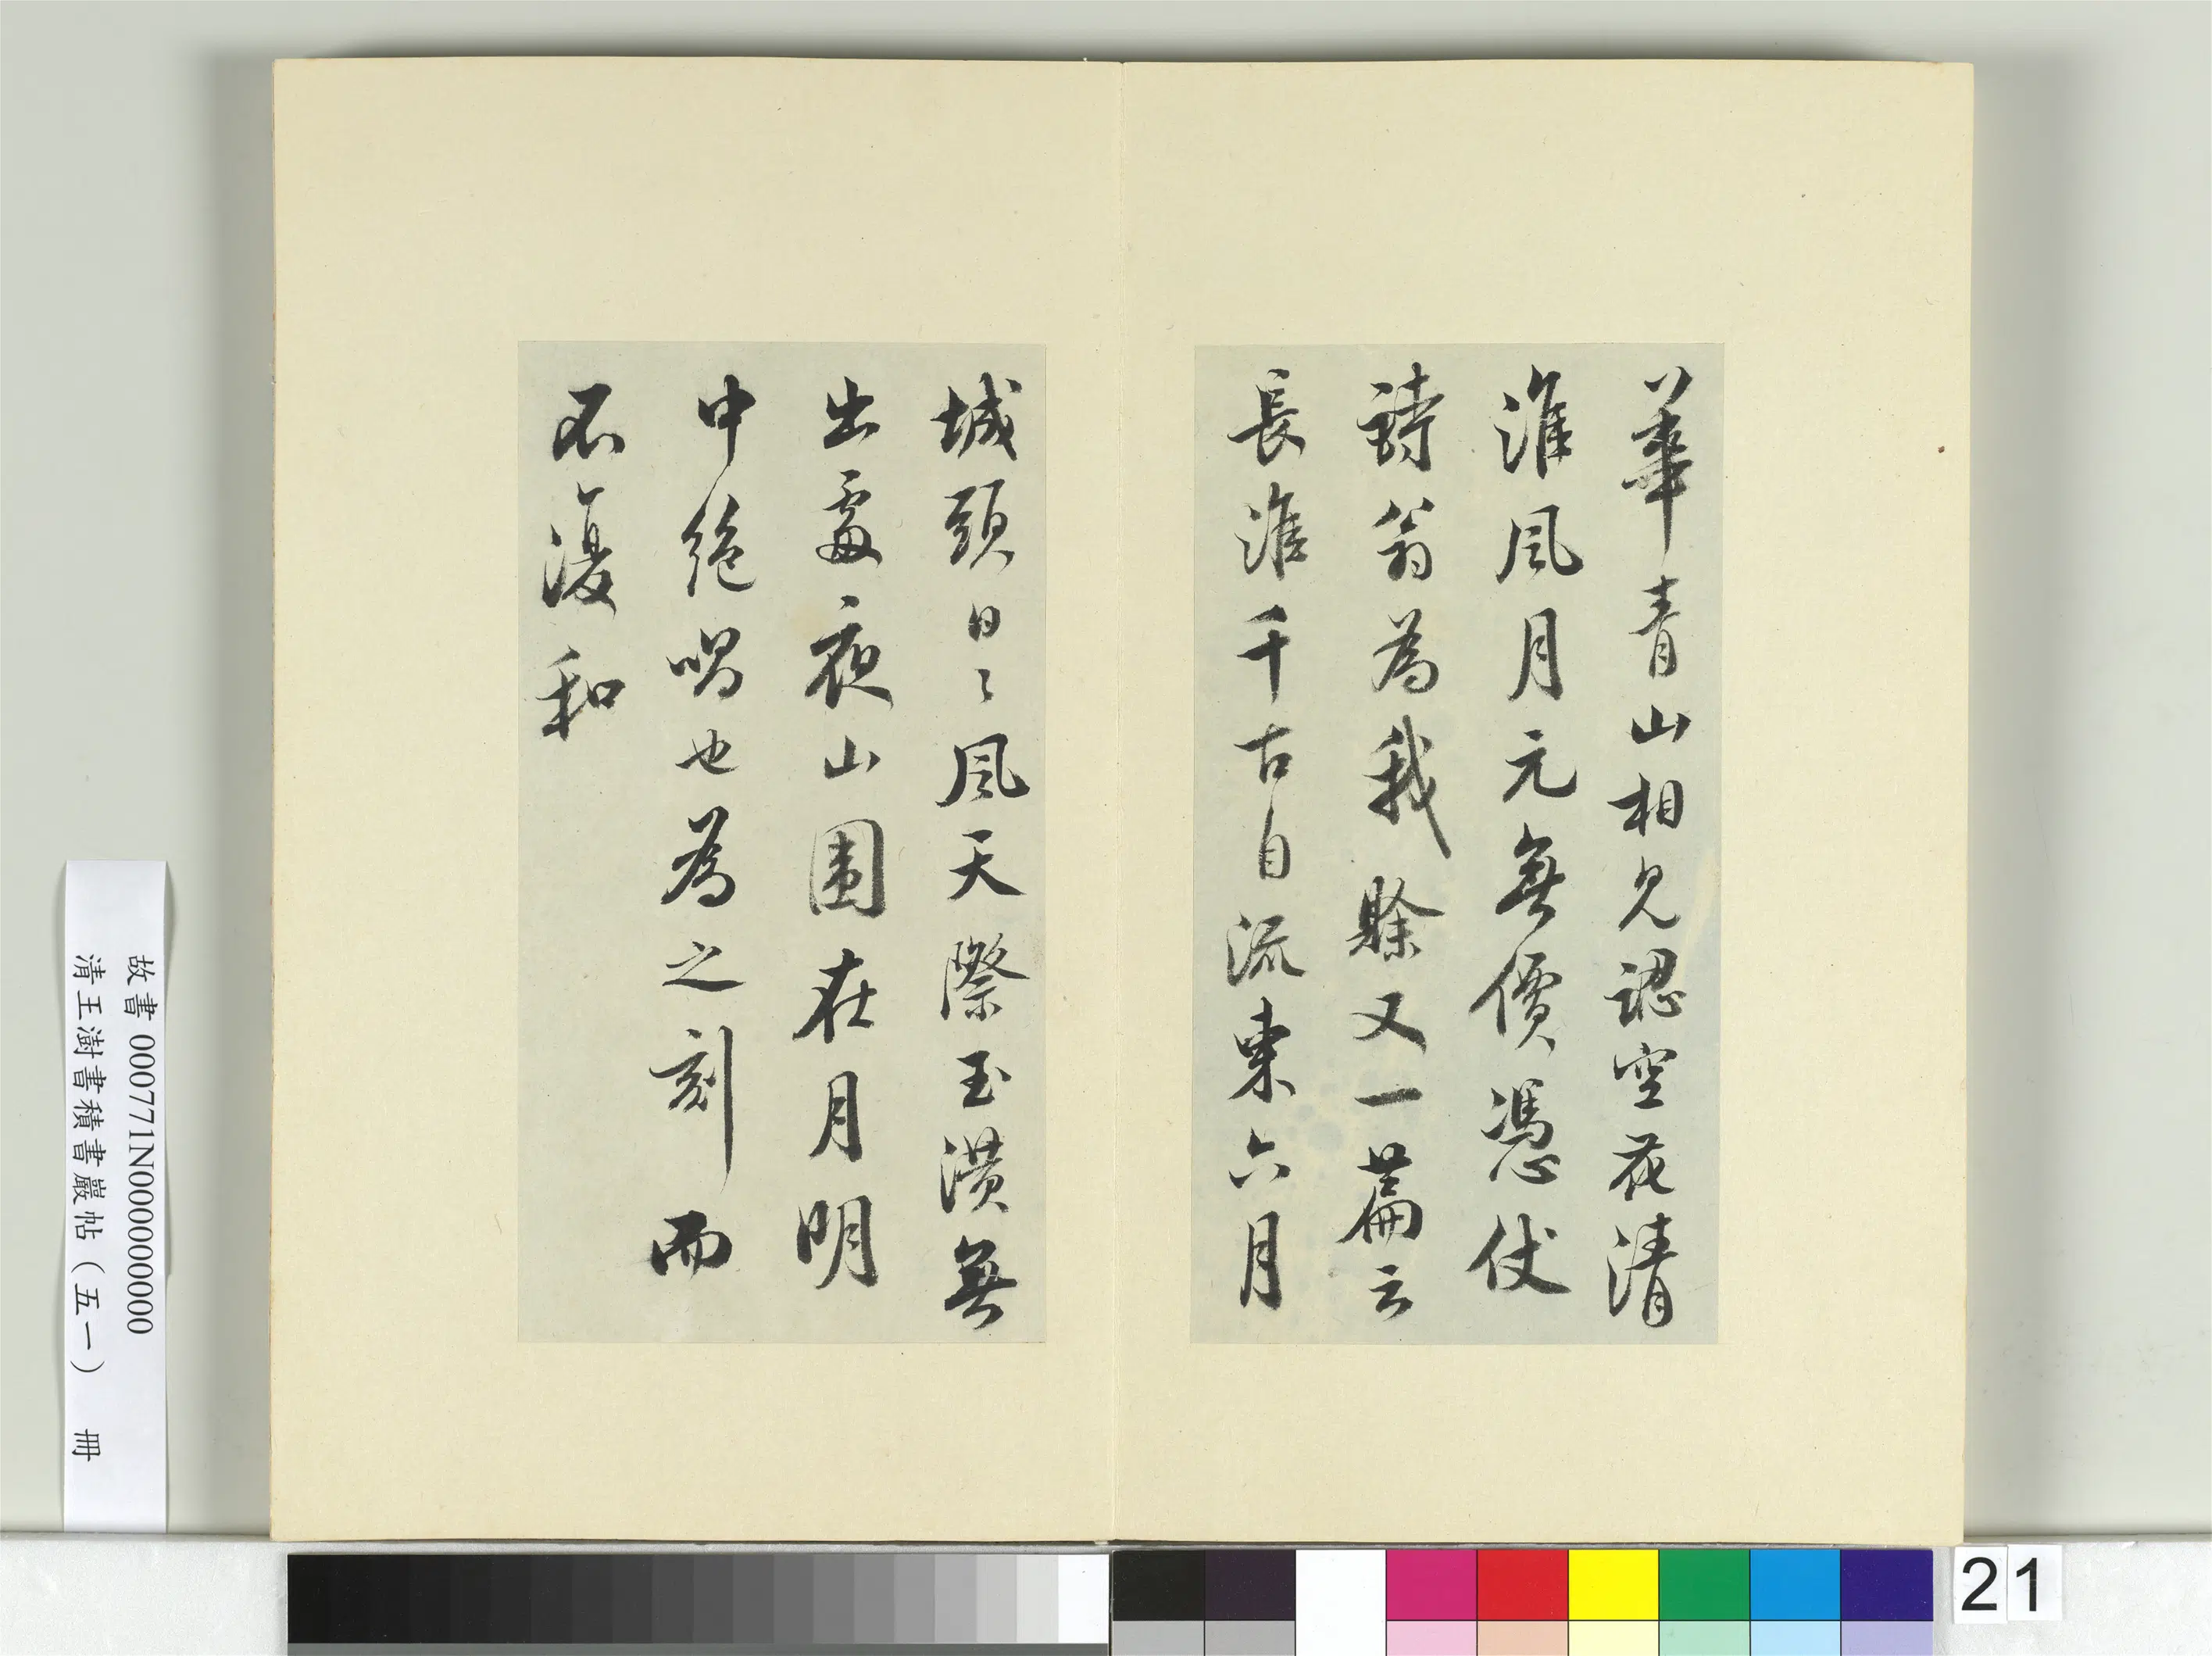 華青山相見認空花清
淮風月元無價憑仗
詩翁為我賒又一篇云
長淮千古自流東六月
城頭日〻風天際玉潢無
出處夜山圍在月明
中絶唱也為之刻而
不復和
故書 000771N000000000
清王澍書積書巖帖(五一) 冊
21